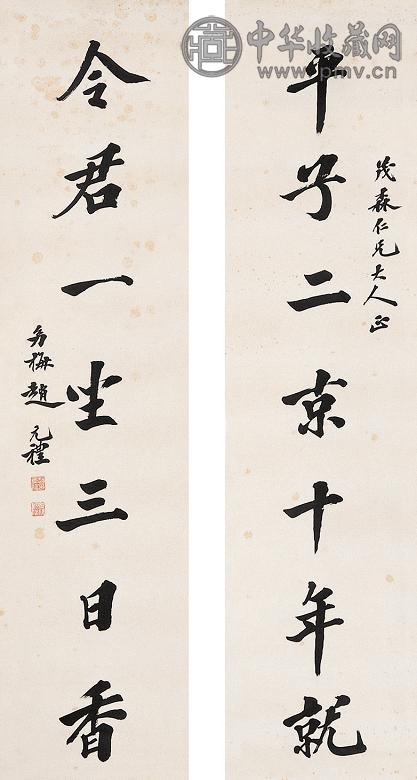 中华收藏网
www.pmv.cn
茂森仁兄大人正
平子二京十年就
令君一坐三日香
幼梅趙元禮